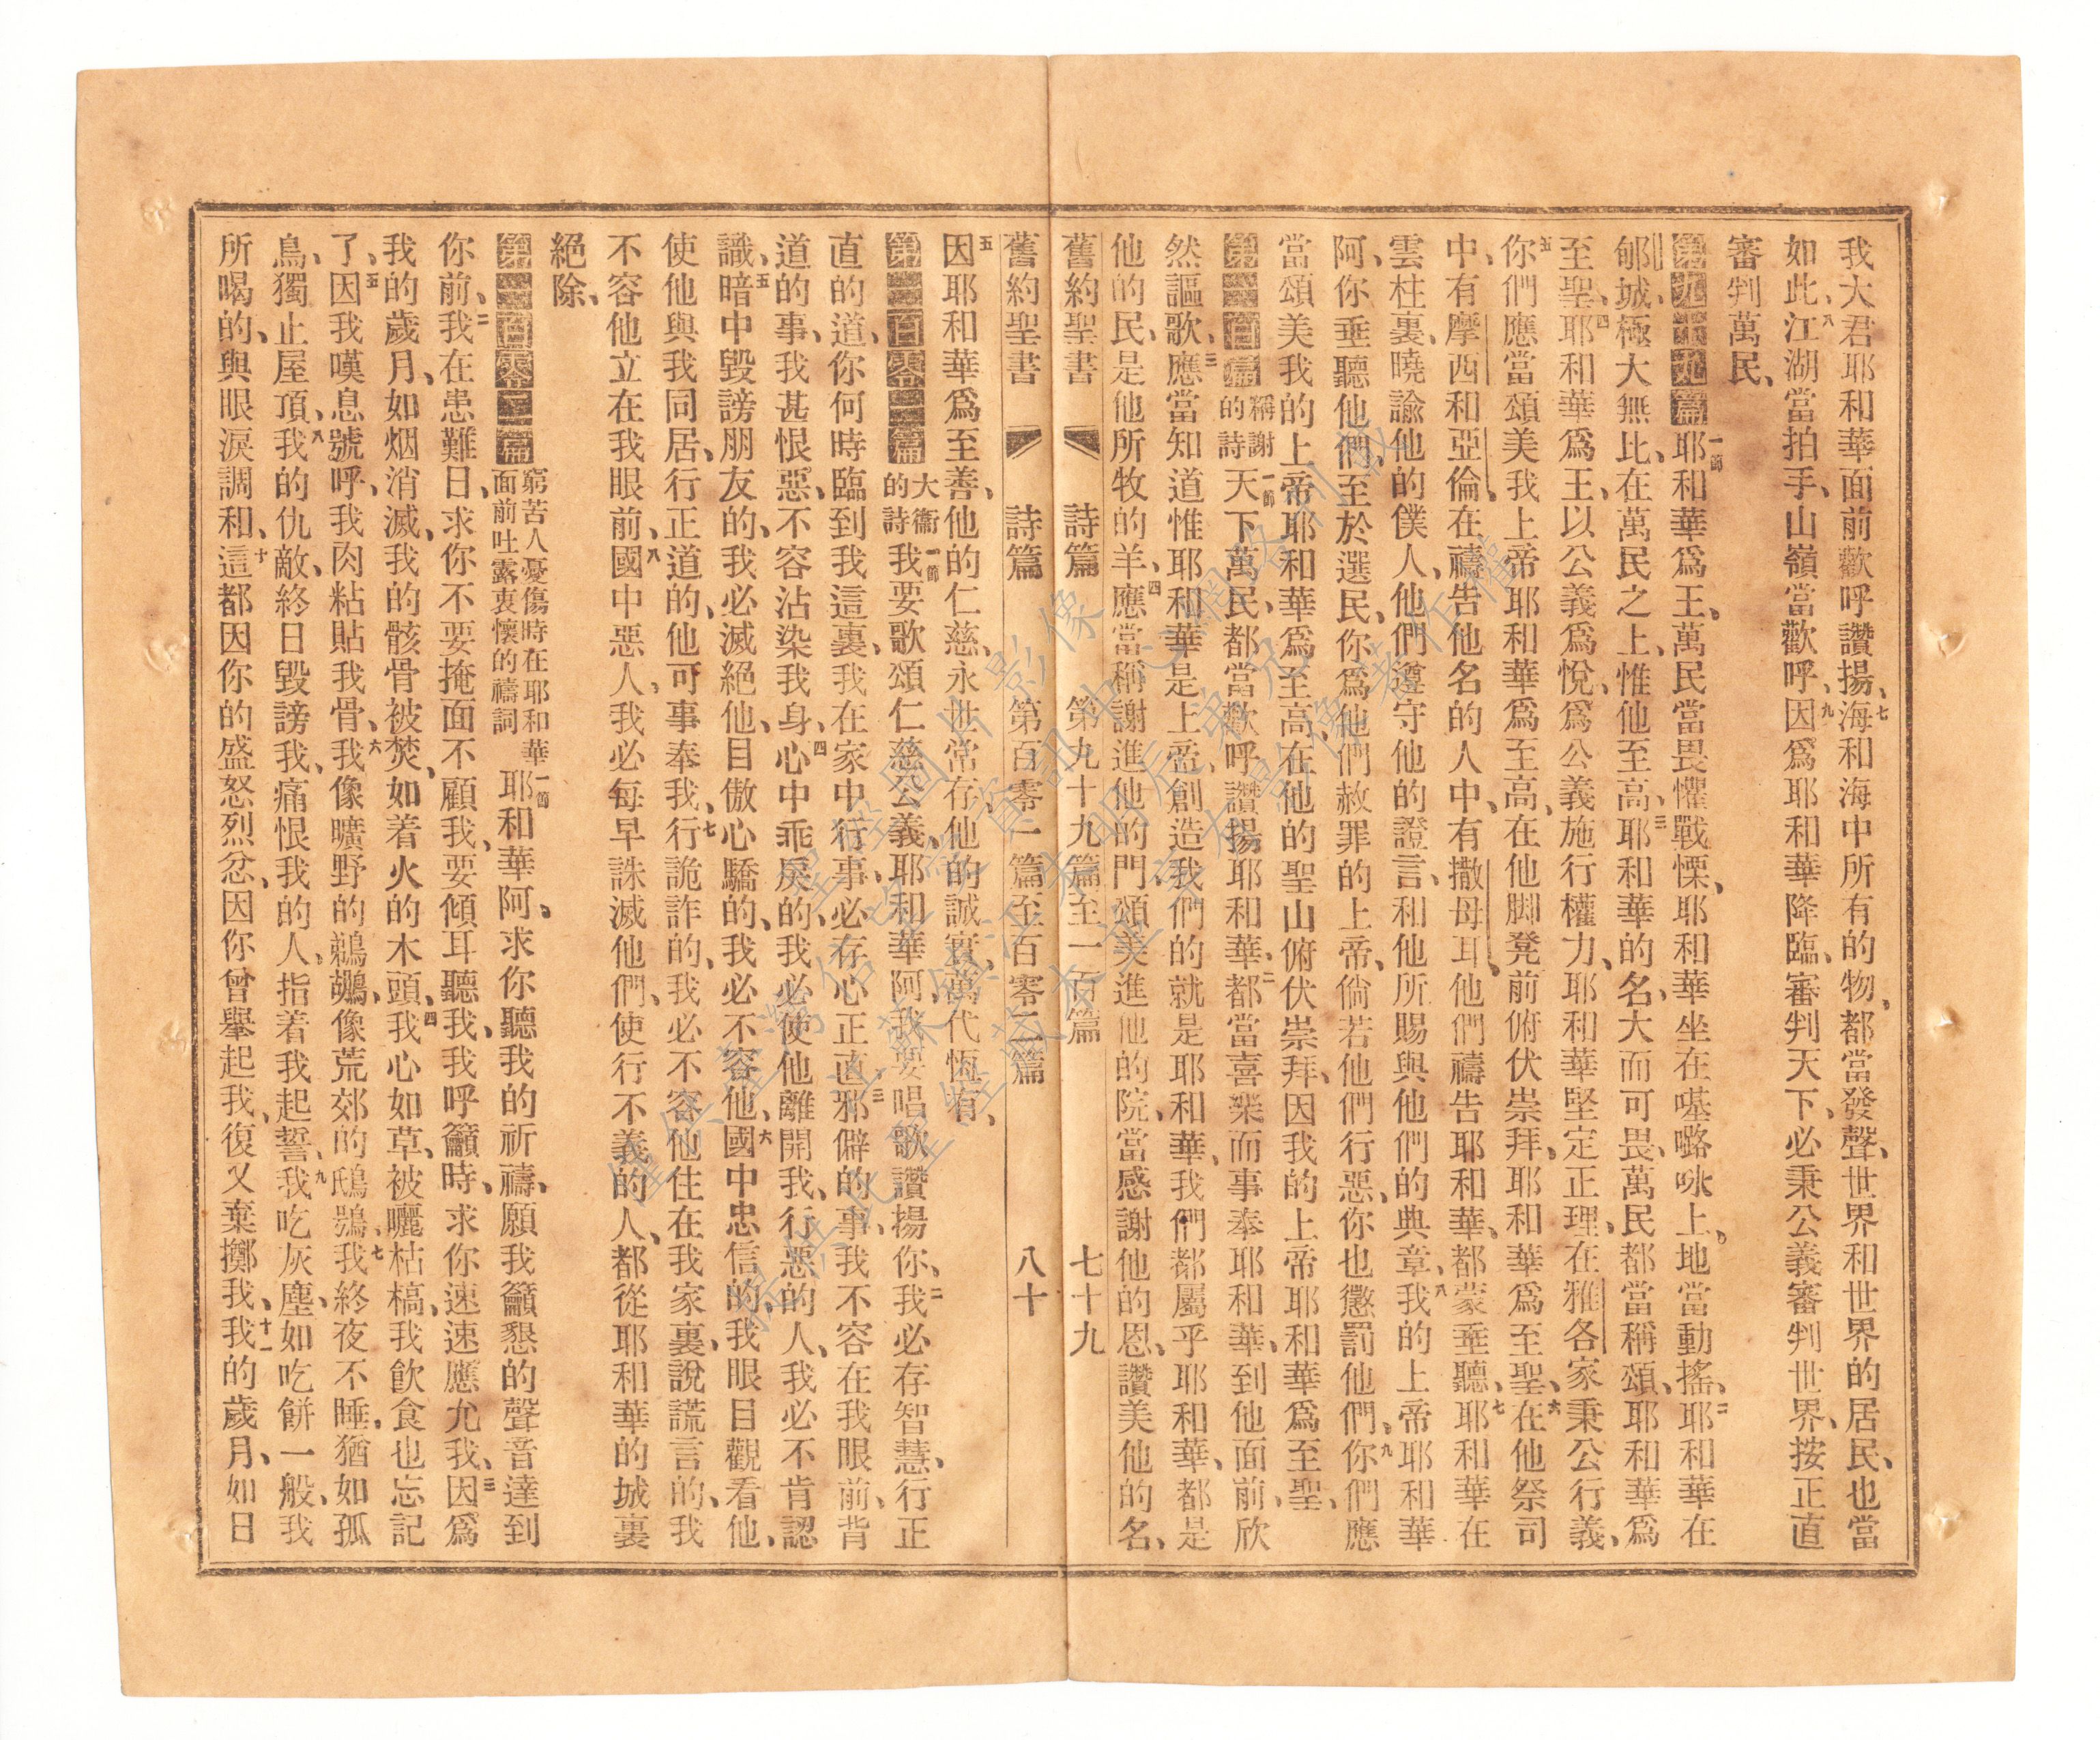 我大君耶和華面前歡呼讚揚、七海和海中所有的物、都當發聲、世界和世界的居民、也當
如此、八江湖當拍手、山嶺當歡呼、九因爲耶和華降臨、審判天下、必秉公義審判世界、按正直
審判萬民、
第九十九篇一節耶和華爲王、萬民當畏懼戰慄、耶和華坐在𠼻嚕咏上、地當動搖、二耶和華在
郇城、極大無比、在萬民之上、惟他至高、三耶和華的名、大而可畏、萬民都當稱頌、耶和華爲
至聖、四耶和華爲王、以公義爲悅、爲公義施行權力、耶和華堅定正理、在雅各家秉公行義、
五你們應當頌美我上帝耶和華爲至高、在他脚凳前俯伏崇拜、耶和華爲至聖、六在他祭司
中、有摩西和亞倫、在禱告他名的人中、有撒母耳、他們禱告耶和華、都蒙垂聽、七耶和華在
雲柱裏、曉諭他的僕人、他們遵守他的證言、和他所賜與他們的典章、八我的上帝耶和華
阿、你垂聽他們、至於選民、你爲他們赦罪的上帝、倘若他們行惡、你也懲罰他們、九你們應
當頌美我的上帝耶和華爲至高、在他的聖山俯伏崇拜、因我的上帝耶和華爲至聖、
第一百篇稱謝的詩一節天下萬民、都當歡呼讚揚耶和華、二都當喜樂而事奉耶和華、到他面前、欣
然謳歌、三應當知道惟耶和華是上帝、創造我們的就是耶和華、我們都屬乎耶和華、都是
他的民、是他所牧的羊、四應當稱謝進他的門、頌美進他的院、當感謝他的恩、讚美他的名、
舊約聖書 詩篇 第九十九篇至一百篇 七十九
舊約聖書 詩篇 第百零一篇至百零二篇 八十
五因耶和華爲至善、他的仁慈、永世常存、他的誠實、萬代恆有、
第一百零一篇大衞的詩一節我要歌頌仁慈公義、耶和華阿、我要唱歌讚揚你、二我必存智慧、行正
直的道、你何時臨到我這裏、我在家中行事、必存心正直、三邪僻的事、我不容在我眼前、背
道的事、我甚恨惡、不容沾染我身、四心中乖戾的、我必使他離開我、行惡的人、我必不肯認
識、五暗中毀謗朋友的、我必滅絕他、目傲心驕的、我必不容他、六國中忠信的、我眼目觀看他、
使他與我同居、行正道的、他可事奉我、七行詭詐的、我必不容他住在我家裏、說謊言的、我
不容他立在我眼前、八國中惡人、我必每早誅滅他們、使行不義的人、都從耶和華的城裏
絕除、
第一百零二篇窮苦人憂傷時在耶和華面前吐露衷懷的禱詞一節耶和華阿、求你聽我的祈禱、願我籲懇的聲音達到
你前、二我在患難日、求你不要掩面不顧我、要傾耳聽我、我呼籲時、求你速速應允我、三因爲
我的歲月、如烟消滅、我的骸骨被焚、如着火的木頭、四我心如草、被曬枯槁、我飮食也忘記
了、五因我嘆息號呼、我肉粘貼我骨、六我像曠野的鵜鶘、像荒郊的鴟鴞、七我終夜不睡、猶如孤
鳥、獨止屋頂、八我的仇敵、終日毀謗我、痛恨我的人、指着我起誓、九我吃灰塵、如吃餅一般、我
所喝的、與眼淚調和、十這都因你的盛怒烈忿、因你曾舉起我、復又棄擲我、十一我的歲月、如日